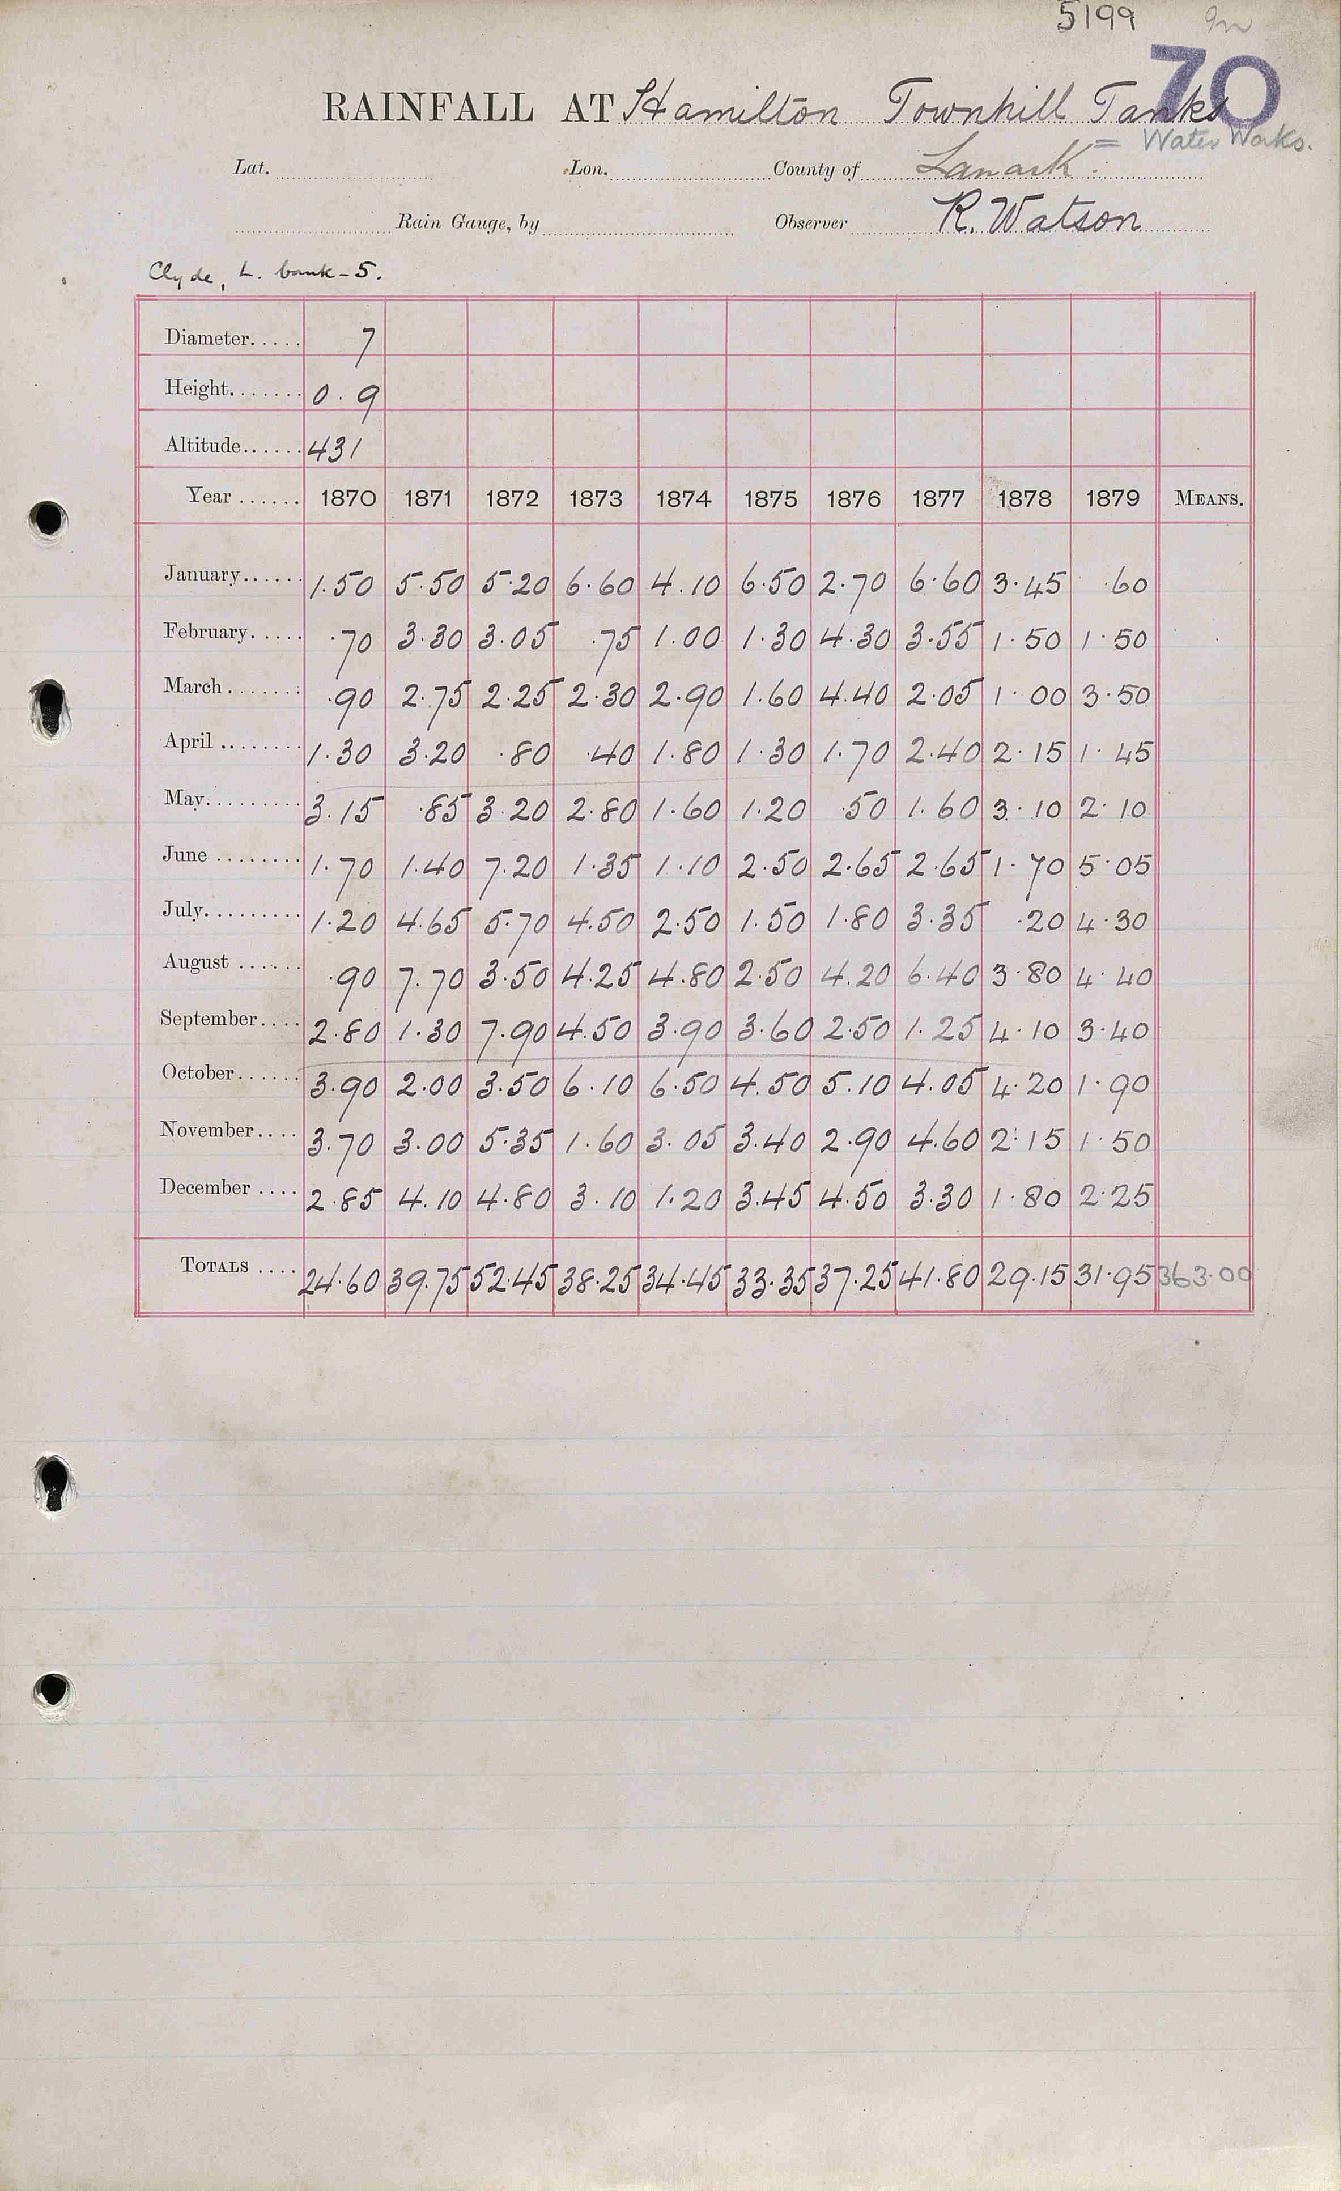 5199
70
RAINFALL AT Hamilton Townhill Tanks
= Water Works.
Lat. Lon. County of Lanark.
Rain Gauge, by Observer R. Watson
Clyde, L. bank - 5.
Diameter..... 7
Height....... 0.9
Altitude...... 431
Year ...... 1870 1871 1872 1873 1874 1875 1876 1877 1878 1879 MEANS.
January...... 1.50 5.50 5.20 6.60 4.10 6.50 2.70 6.60 3.45 .60
February..... .70 3.30 3.05 .75 1.00 1.30 4.30 3.55 1.50 1.50
March....... .90 2.75 2.25 2.30 2.90 1.60 4.40 2.05 1.00 3.50
April ........ 1.30 3.20 .80 .40 1.80 1.30 1.70 2.40 2.15 1.45
May......... 3.15 .85 3.20 2.80 1.60 1.20 .50 1.60 3.10 2.10
June ........ 1.70 1.40 7.20 1.35 1.10 2.50 2.65 2.65 1.70 5.05
July......... 1.20 4.65 5.70 4.50 2.50 1.50 1.80 3.35 .20 4.30
August ...... .90 7.70 3.50 4.25 4.80 2.50 4.20 6.40 3.80 4.40
September.... 2.80 1.30 7.90 4.50 3.90 3.60 2.50 1.25 4.10 3.40
October...... 3.90 2.00 3.50 6.10 6.50 4.50 5.10 4.05 4.20 1.90
November.... 3.70 3.00 5.35 1.60 3.05 3.40 2.90 4.60 2.15 1.50
December .... 2.85 4.10 4.80 3.10 1.20 3.45 4.50 3.30 1.80 2.25
TOTALS .... 24.60 39.75 52.45 38.25 34.45 33.35 37.25 41.80 29.15 31.95 363.00